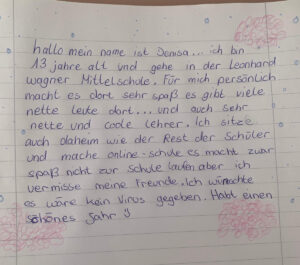 hallo mein name ist Denisa... ich bin
13 jahre alt und gehe in der Leonhard
wagner Mittelschule. Für mich persönlich
macht es dort sehr spaß es gibt viele
nette leute dort... und auch sehr
nette und coole lehrer. Ich sitze
auch daheim wie der Rest der Schüler
und mache online-schule es macht zwar
spaß nicht zur Schule laufen aber ich
vermisse meine freunde. Ich wünschte
es wäre kein Virus gegeben. Habt einen
schönes Jahr :)